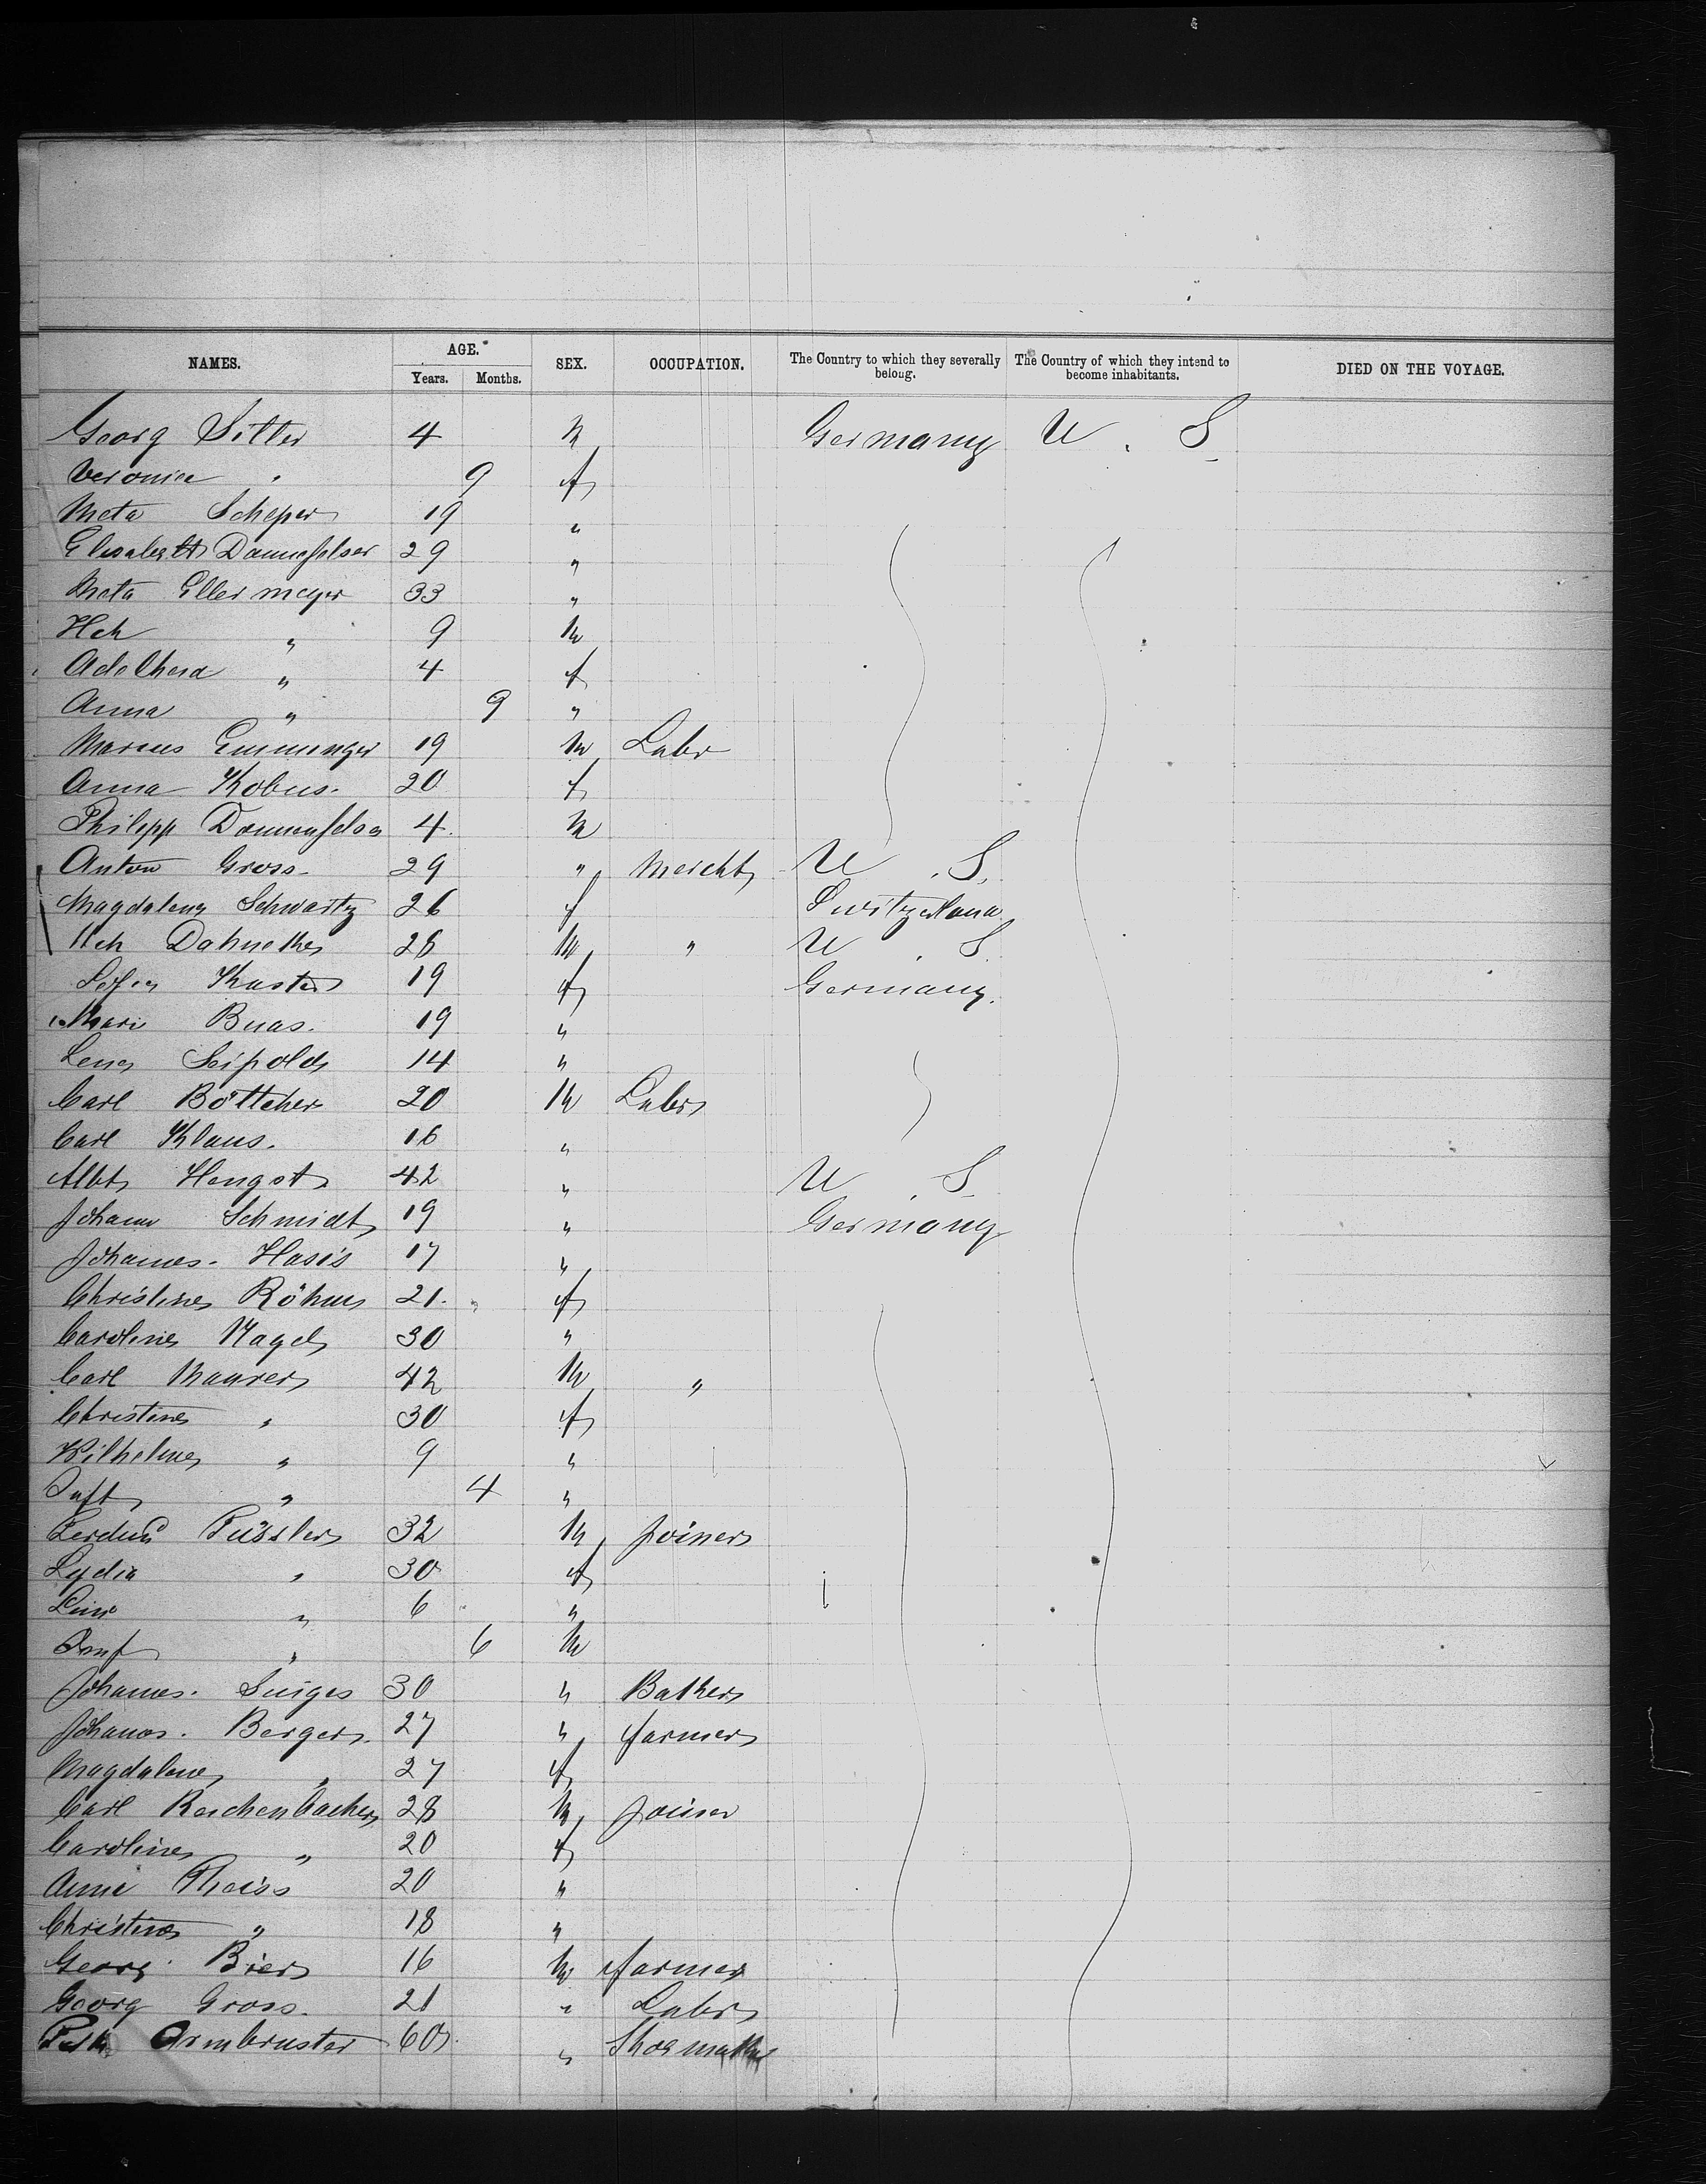 NAMES. AGE. SEX. OCCUPATION. The Country to which they severally belong. The Country of which they intend to become inhabitants. DIED ON THE VOYAGE.
Years. Months.
Georg 4 M Germany U. S.
Veronica " 9 f
Meta Scheper 19 "
Elisabeth Dannefelser 29 "
Meta Ellermeyer 33 "
Hch " 9 M
Adelheid " 4 f
Anna " 9 "
Marcus Emminger 19 M Labr
Anna Kobus. 20 f
Philipp Dannenfelser 4. M
Anton Gross. 29 " Mercht U. S.
Magdalena Schwartz 26 f Switzerland
Hch 26 M " U. S.
19 f Germany.
Marie 19 "
Lena Seipold 14 "
Carl Böttcher 20 M Labr
Carl Klaus. 16 "
Albt Hengst 42 " U. S.
Johann Schmidt 19 " Germany
Johannes. Hasis 17 "
Christine Röhm 21. f
Caroline Nagel 30 "
Carl Maurer 42 M "
Christine " 30 f
Wilhelme " 9 "
" 4 "
32 M Joiner
Lydia " 30 f
" 6 "
" 6 M
Johannes. 30 " Baker
Johanes. Berger. 27 " farmer
Magdalene " 27 f
Carl Reichenbacher 28 M Joiner
Caroline " 20 f
Anna Theiss 20 "
Christine " 18 "
Georg Bier 16 M farmer
Georg Gross. 21 " Labr
Armbruster 60 " Shoemaker